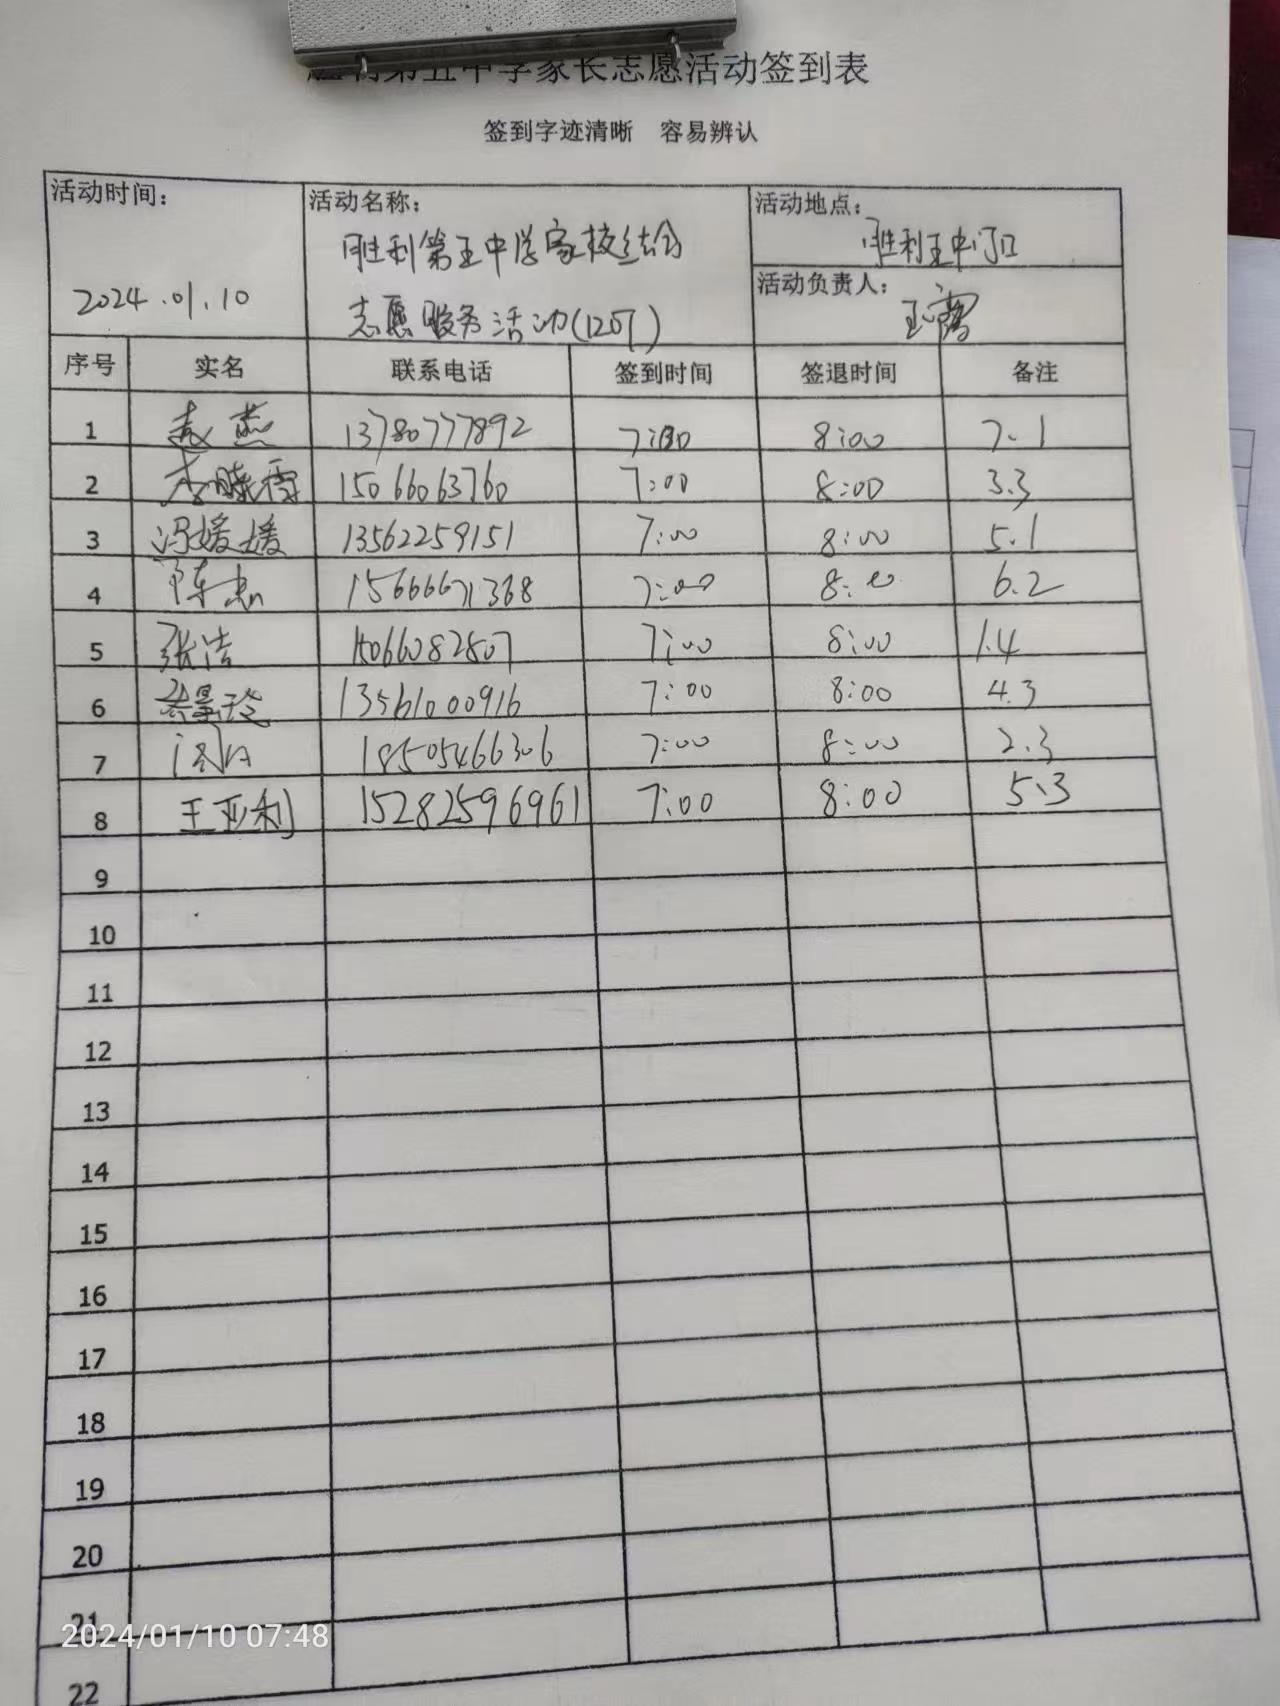 第五中学家长志愿活动签到表
签到字迹清晰 容易辨认
活动时间： 活动名称： 活动地点：
胜利第五中学家校结合 胜利五中门口
2024.01.10 志愿服务活动(120 ) 活动负责人：
序号 实名 联系电话 签到时间 签退时间 备注
1 赵燕 13780777892 7:00 8:00 7.1
2 李晓霞 15066063760 7:00 8:00 3.3
3 冯媛媛 13562259151 7:00 8:00 5.1
4 陈忠 15666671368 7:00 8:00 6.2
5 张洁 15066082807 7:00 8:00 1.4
6 13561000916 7:00 8:00 4.3
7 18505466306 7:00 8:00 2.3
8 王亚利 15282596961 7:00 8:00 5.3
9
10
11
12
13
14
15
16
17
18
19
20
21
2024/01/10 07:48
22